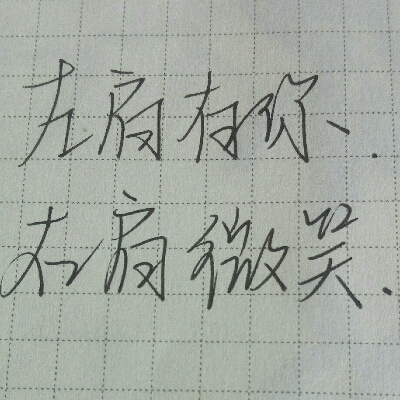 左肩有你、.
右肩微笑.